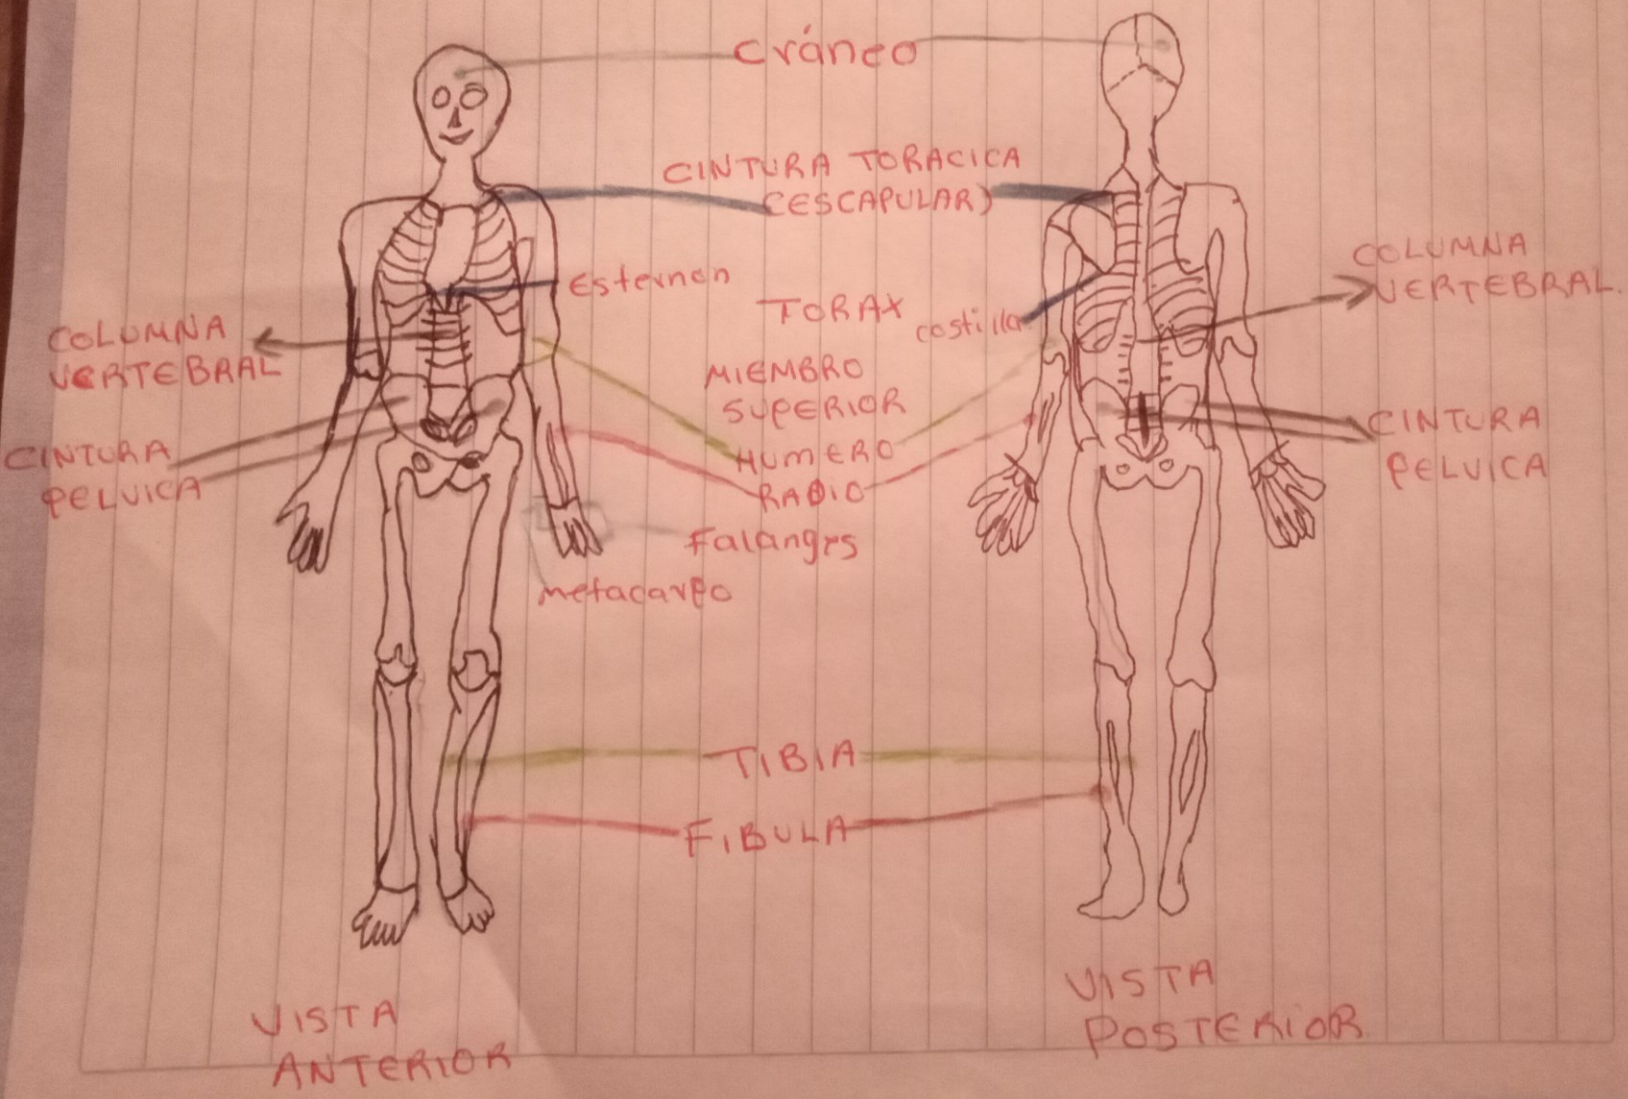 Cráneo
CINTURA TORACICA
(ESCAPULAR)
Esternon
TORAX
costilla
COLUMNA
VERTEBRAL
COLUMNA
VERTEBRAL.
MIEMBRO
SUPERIOR
HUMERO
RADIO
CINTURA
PELVICA
CINTURA
PELVICA
Falanges
metacarpo
TIBIA
FIBULA
VISTA
ANTERIOR
VISTA
POSTERIOR